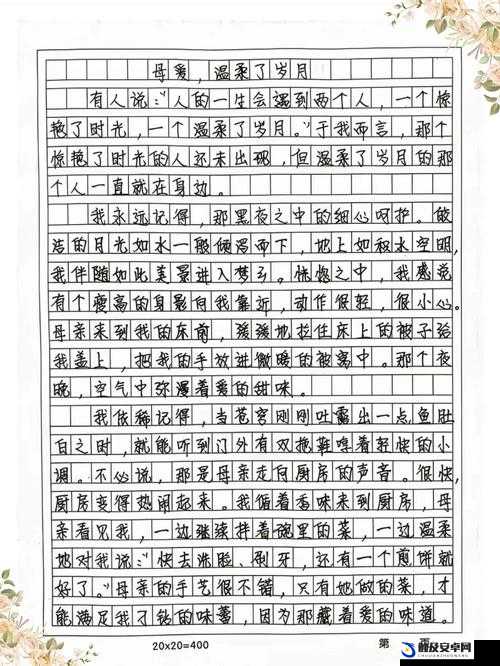 母爱，温柔了岁月
有人说："人的一生会遇到两个人，一个惊
艳了时光，一个温柔了岁月。"于我而言，那个
惊艳了时光的人还未出现，但温柔了岁月的那
个人一直就在身边。
我永远记得，那黑夜之中的细心呵护。皎
洁的月光如水一般倾泻而下，地上如积水空明，
我伴随如此美景进入梦乡。恍惚之中，我感觉
有个瘦高的身影向我靠近，动作很轻，很小心。
母亲来到我的床前，缓缓地拉住床上的被子给
我盖上，把我的手放进微暖的被窝中。那个夜
晚，空气中弥漫着爱的甜味。
我依稀记得，当苍穹刚刚吐露出一点鱼肚
白之时，就能听到门外有双拖鞋哼着轻快的小
调。不必说，那是母亲走向厨房的声音。很快，
厨房变得热闹起来。我循着香味来到厨房，母
亲看见我，一边继续拌着碗里的菜，一边温柔
地对我说："快去洗脸、刷牙，还有一个煎饼就
好了。"母亲的手艺很不错，只有她做的菜，才
能满足我刁钻的味蕾，因为那藏着爱的味道。
20×20=400
第 页